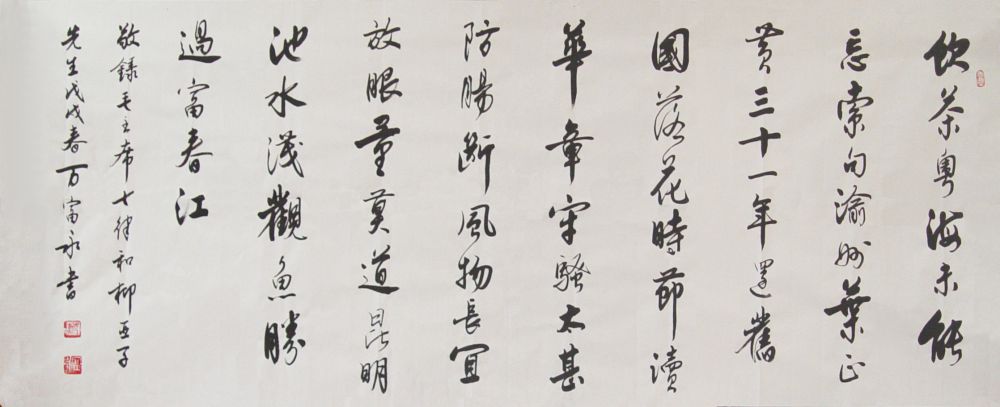 飲茶粵海未能
忘索句渝州葉正
黃三十一年還舊
國落花時節讀
華章牢騷太甚
防腸斷風物長宜
放眼量莫道昆明
池水淺觀魚勝
過富春江
敬錄毛主席七律和柳亞子
先生戊戌春富永書